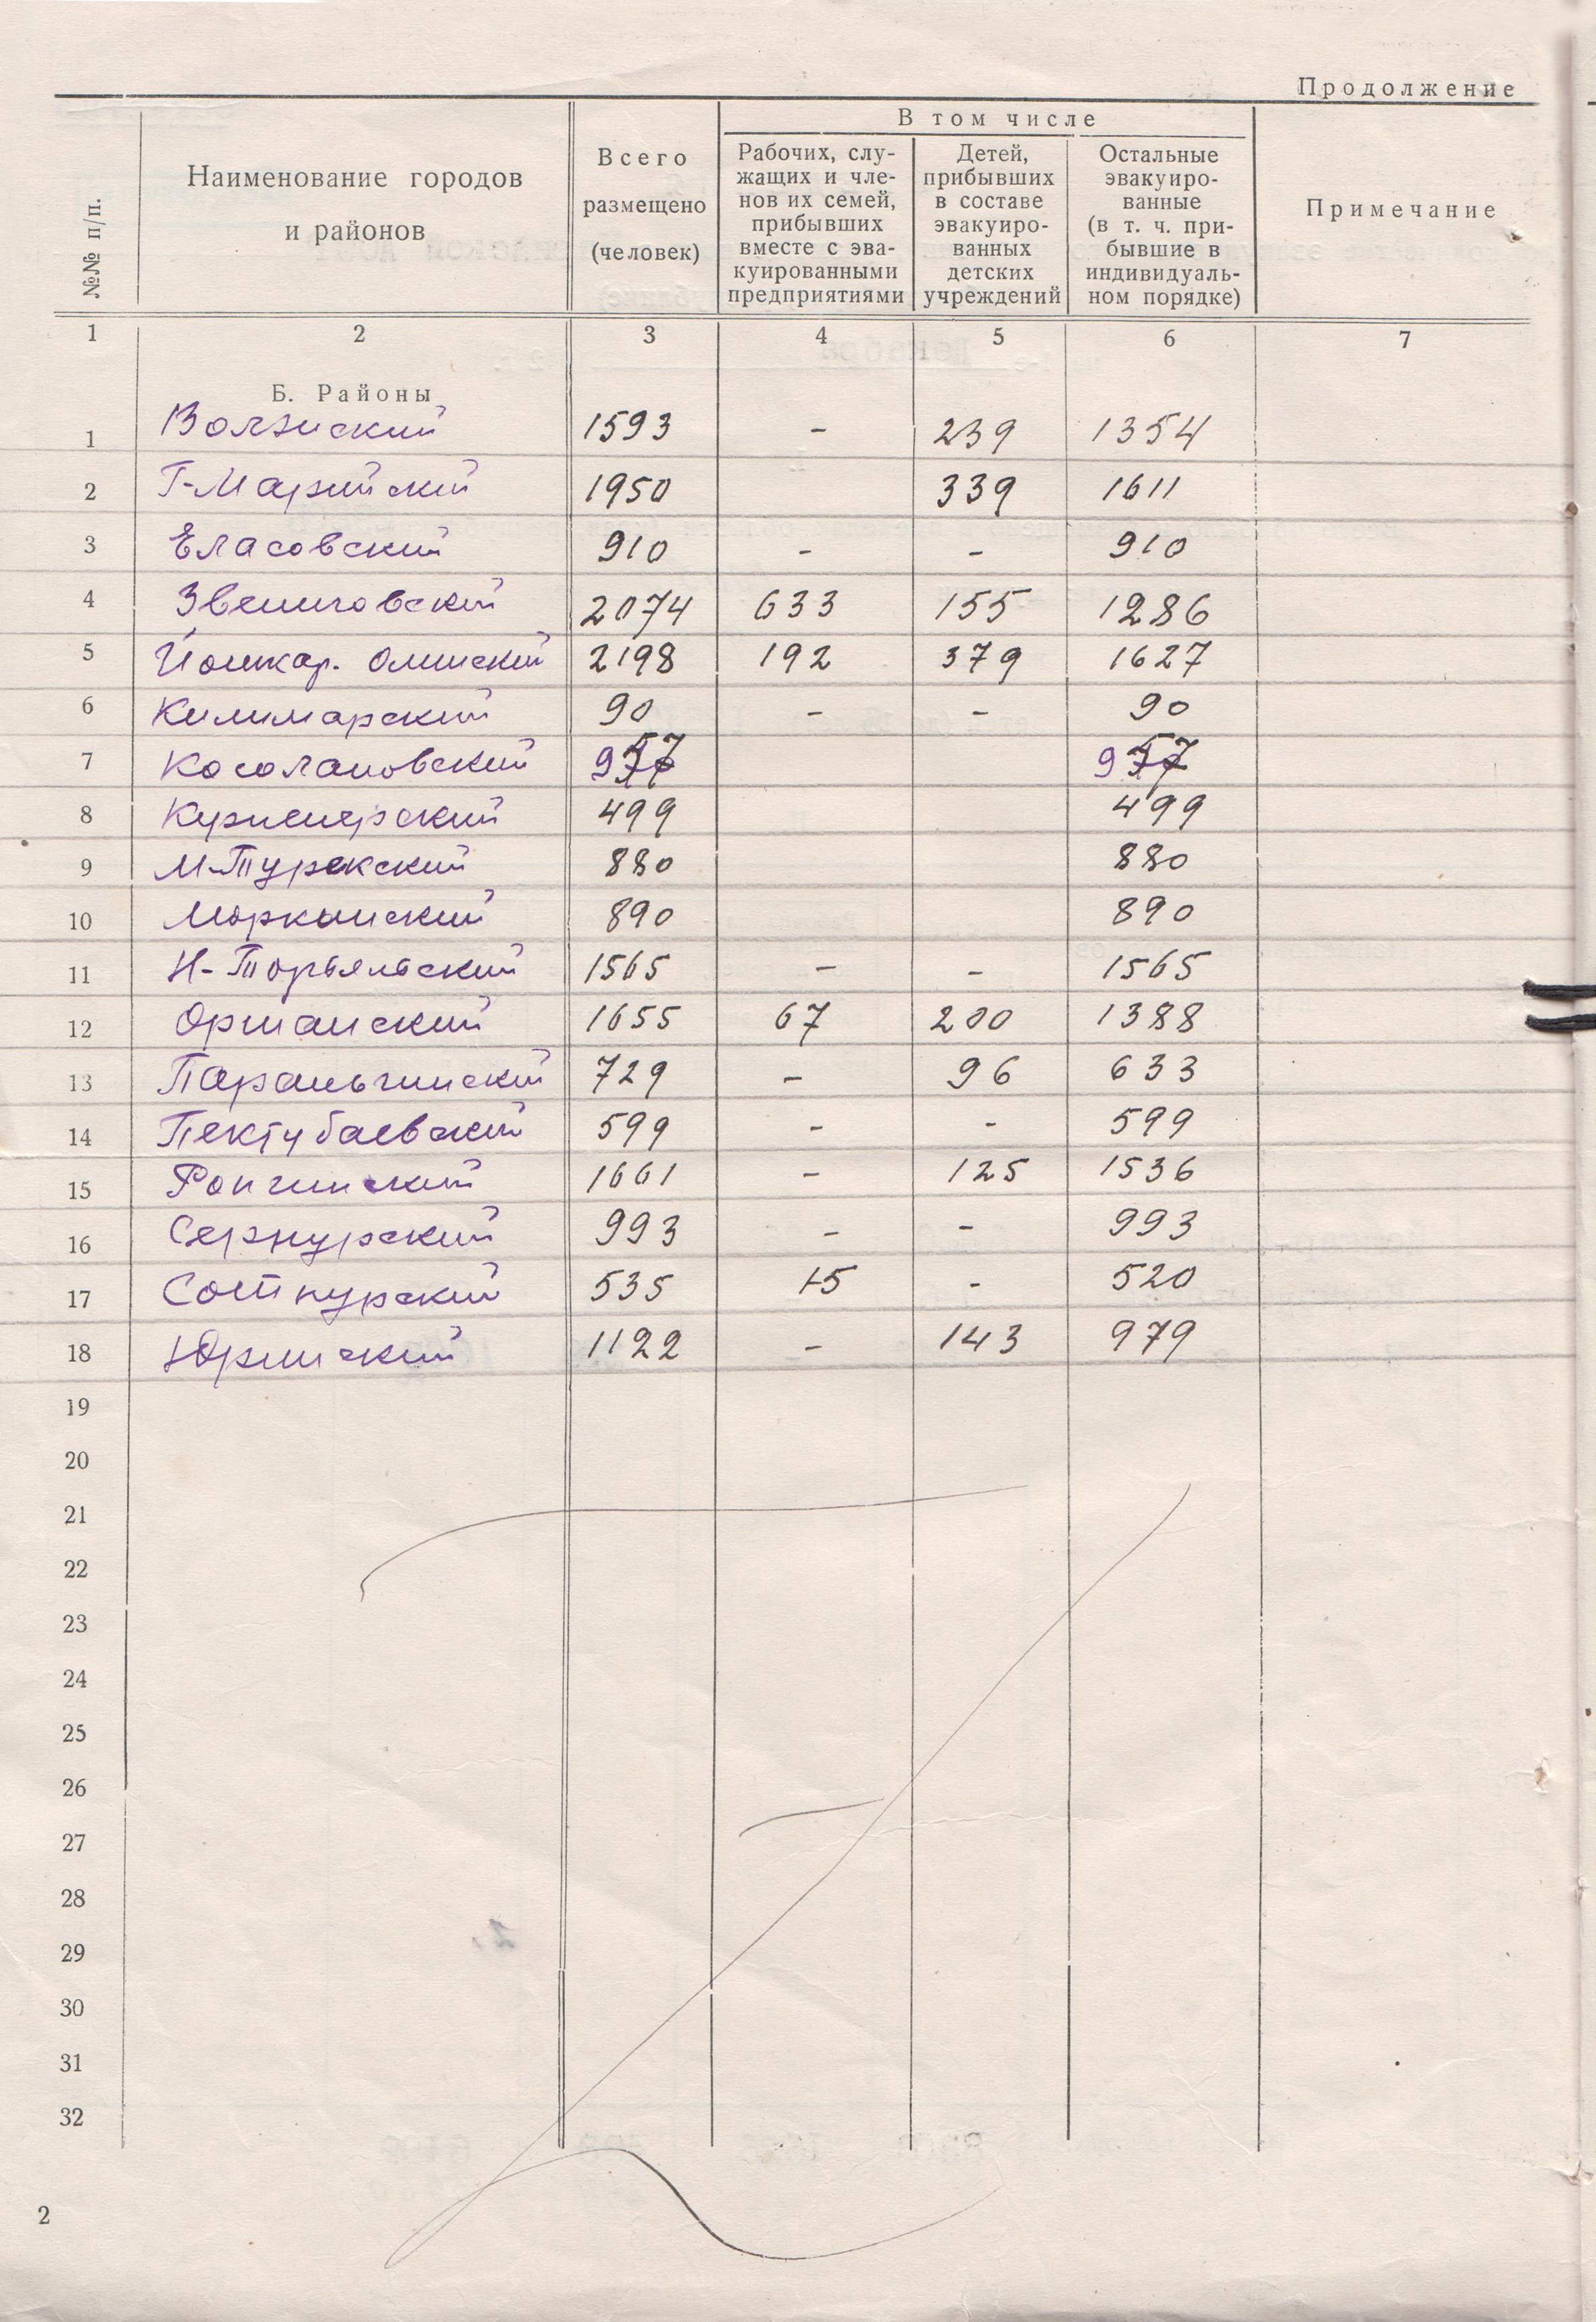 Продолжение
№№ п/п.
Наименование городов
и районов
Всего
размещено
(человек)
В том числе
Рабочих, слу-
жащих и чле-
нов их семей,
прибывших
вместе с эва-
куированными
предприятиями
Детей,
прибывших
в составе
эвакуиро-
ванных
детских
учреждений
Остальные
эвакуиро-
ванные
(в т. ч. при-
бывшие в
индивидуаль-
ном порядке)
Примечание
1 2 3 4 5 6 7
Б. Районы
1 Волжский 1593 - 239 1354
2 Г-Марийский 1950 339 1611
3 Еласовский 910 - - 910
4 Звениговский 2074 633 155 1286
5 Йошкар. Олинский 2198 192 379 1627
6 Килимарский 90 - - 90
7 Косолаповский 957 957
8 Куженерский 499 499
9 М-Турекский 880 880
10 Моркинский 890 890
11 Н-Торъяльский 1565 - - 1565
12 Оршанский 1655 67 200 1388
13 Параньгинский 729 - 96 633
14 Пектубаевский 599 - - 599
15 Ронгинский 1661 - 125 1536
16 Сернурский 993 - - 993
17 Сотнурский 535 15 - 520
18 Юринский 1122 - 143 979
19
20
21
22
23
24
25
26
27
28
29
30
31
32
2